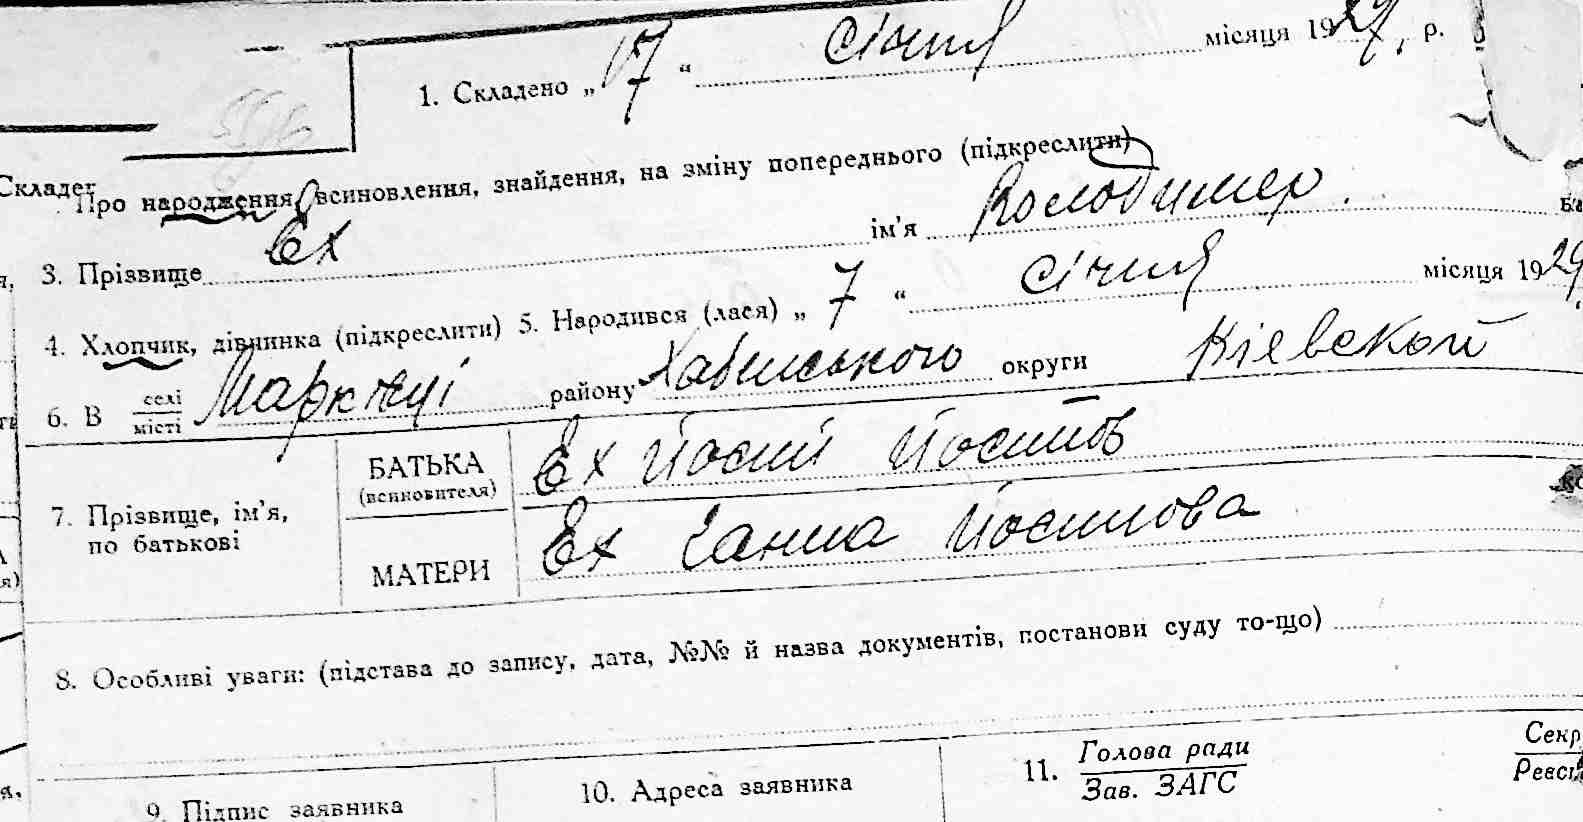 1. Складено „ 17 “ січня місяця 1929, р.
Складег
Про народження, всиновлення, знайдення, на зміну попереднього (підкреслити)
3. Прізвище Ех ім'я Володимер.
4. Хлопчик, дівчинка (підкреслити) 5. Народився (лася) „ 7 “ січня місяця 1929
6. В селі місті району Хабенського округи Кіевской
7. Прізвище, ім'я, по батькові
БАТЬКА (всиновителя) Ех Йосип Йосипов
МАТЕРИ Ех Ганна Йосипова
8. Особливі уваги: (підстава до запису, дата, №№ й назва документів, постанови суду то-що)
9. Підпис заявника 10. Адреса заявника 11. Голова ради Зав. ЗАГС Секр Реєс